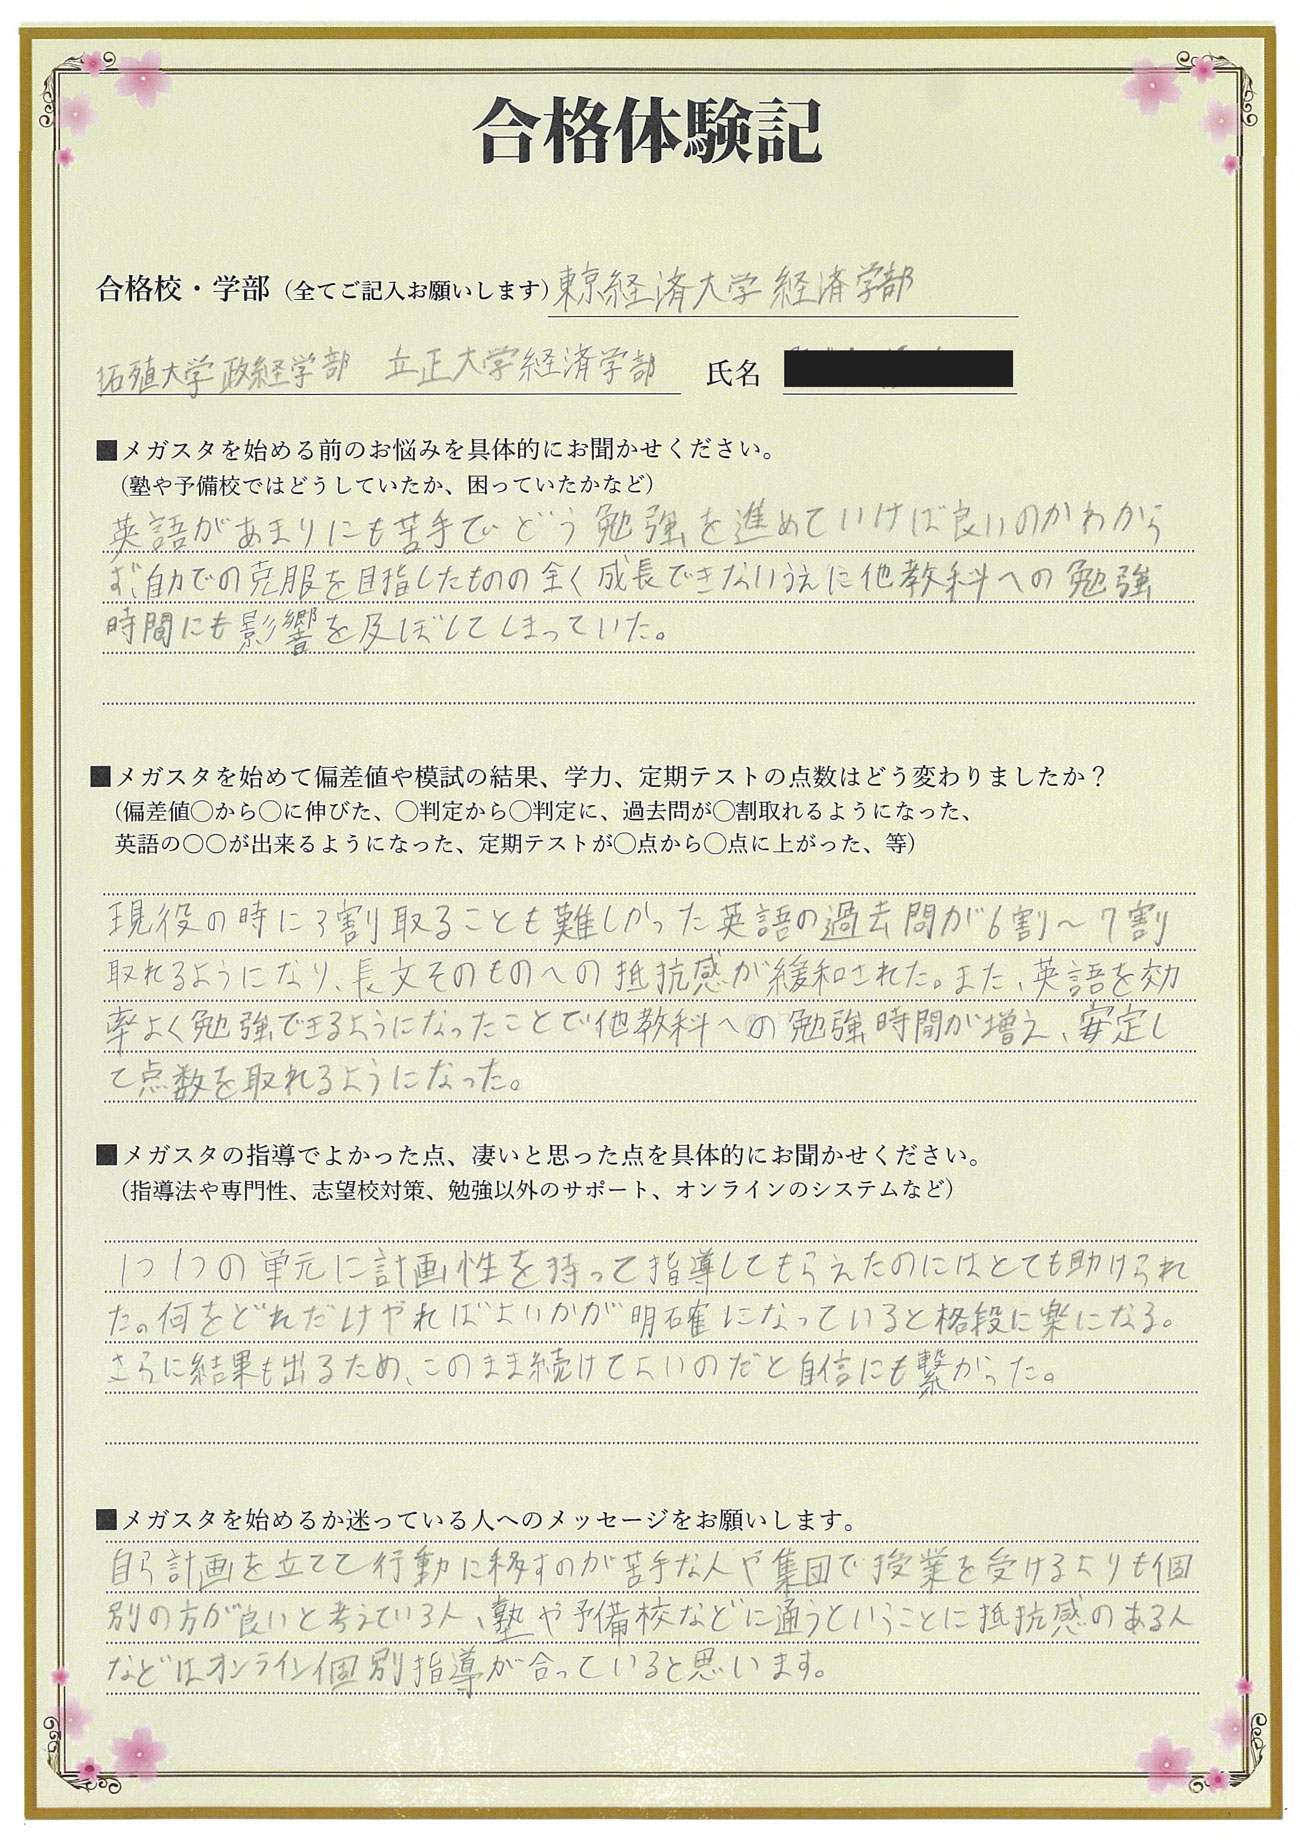 合格体験記
合格校・学部（全てご記入お願いします）東京経済大学 経済学部
拓殖大学政経学部 立正大学経済学部 氏名
■メガスタを始める前のお悩みを具体的にお聞かせください。
（塾や予備校ではどうしていたか、困っていたかなど）
英語があまりにも苦手でどう勉強を進めていけば良いのかわから
ず、自力での克服を目指したものの全く成長できないうえに他教科への勉強
時間にも影響を及ぼしてしまっていた。
■メガスタを始めて偏差値や模試の結果、学力、定期テストの点数はどう変わりましたか？
（偏差値〇から〇に伸びた、〇判定から〇判定に、過去問が〇割取れるようになった、
英語の〇〇が出来るようになった、定期テストが〇点から〇点に上がった、等）
現役の時に3割取ることも難しかった英語の過去問が6割～7割
取れるようになり、長文そのものへの抵抗感が緩和された。また、英語を効
率よく勉強できるようになったことで他教科への勉強時間が増え、安定し
て点数を取れるようになった。
■メガスタの指導でよかった点、凄いと思った点を具体的にお聞かせください。
（指導法や専門性、志望校対策、勉強以外のサポート、オンラインのシステムなど）
1つ1つの単元に計画性を持って指導してもらえたのにはとても助けられ
た。何をどれだけやればよいかが明確になっていると格段に楽になる。
さらに結果も出るため、このまま続けてよいのだと自信にも繋がった。
■メガスタを始めるか迷っている人へのメッセージをお願いします。
自ら計画を立てて行動に移すのが苦手な人や集団で授業を受けるよりも個
別の方が良いと考えている人、塾や予備校などに通うということに抵抗感のある人
などはオンライン個別指導が合っていると思います。